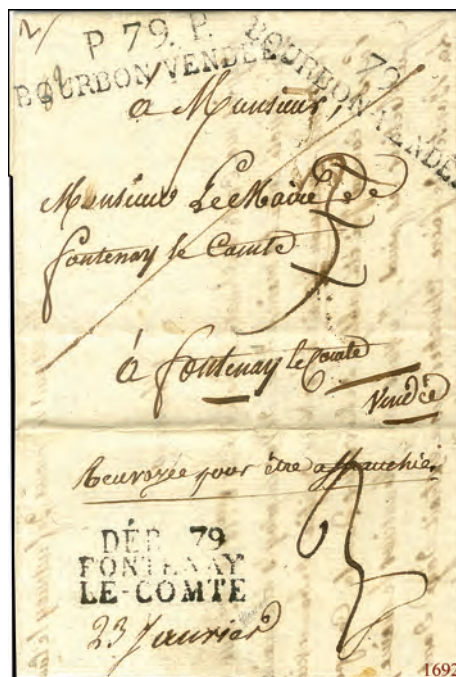 P 79. P.
BOURBON-VENDÉE
79
BOURBON-VENDÉE
à Monsieur,
Monsieur Le Maire de
fontenay le Comte
à fontenay le Comte
Vendée
Renvoyée pour être affranchie.
DÉB. 79
FONTENAY
LE-COMTE
23 Janvier
1692